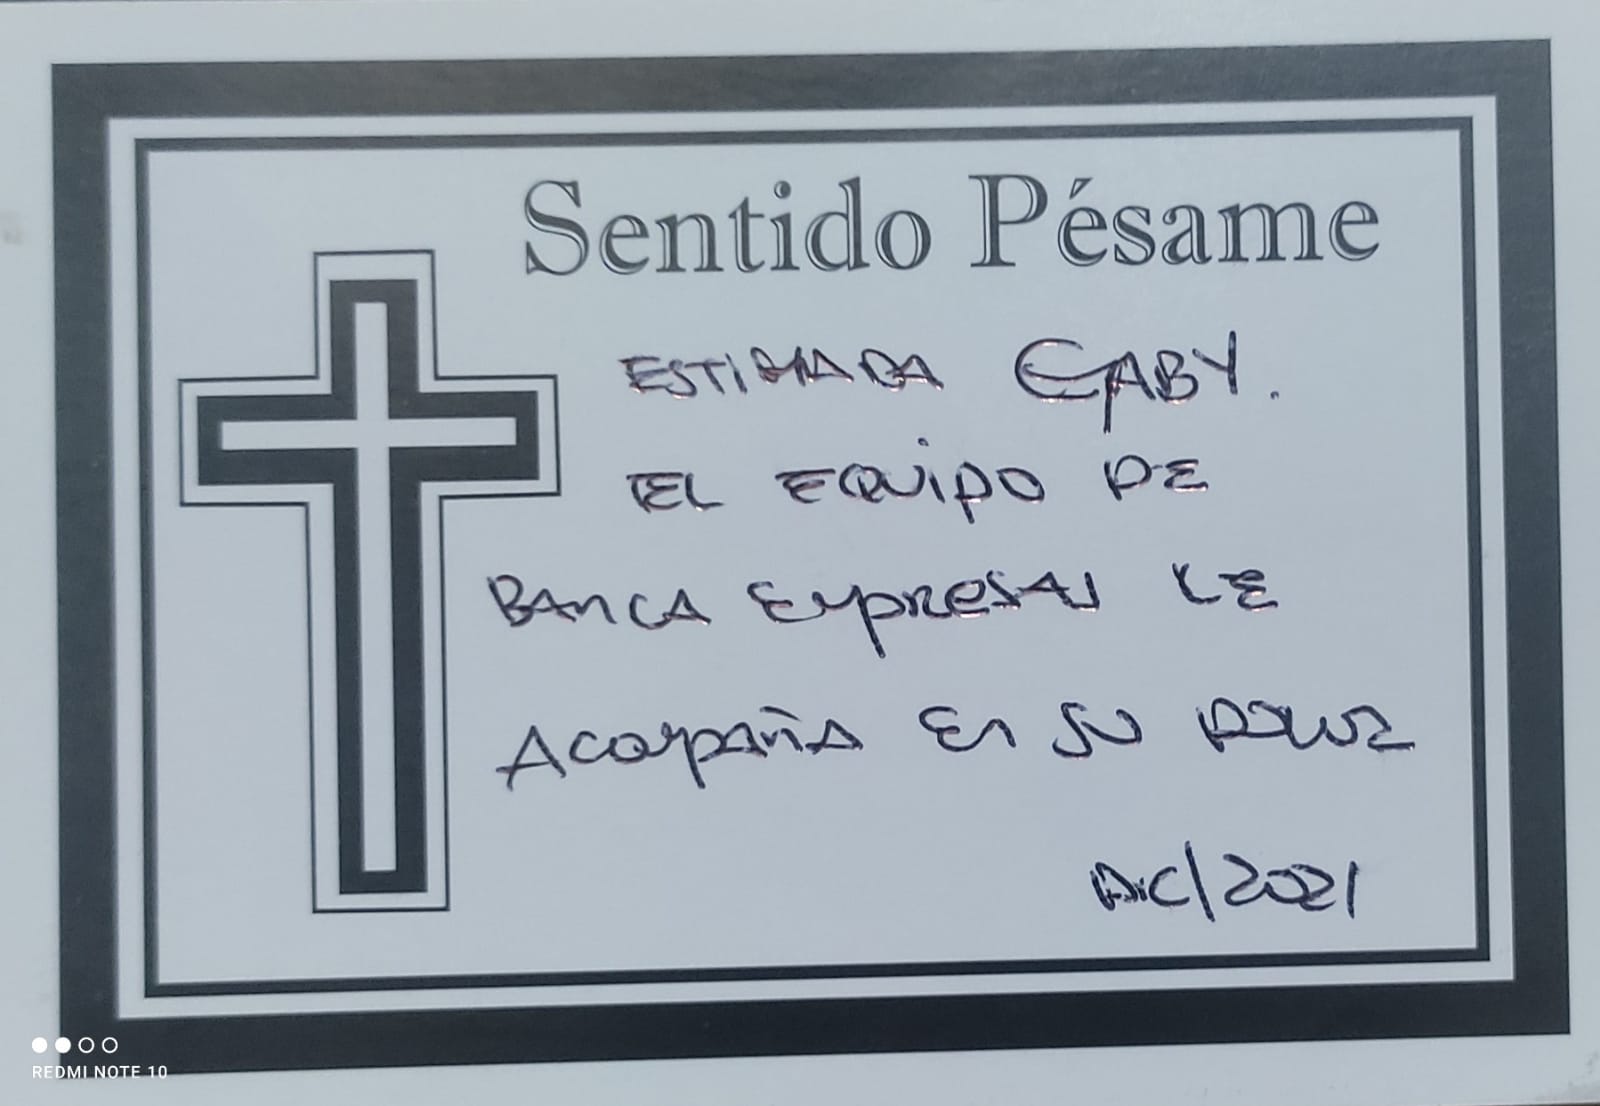 Sentido Pésame
ESTIMADA GABY.
EL EQUIPO DE
BANCA EMPRESAS LE
ACOMPAÑA EN SU DOLOR
DIC/2021
REDMI NOTE 10